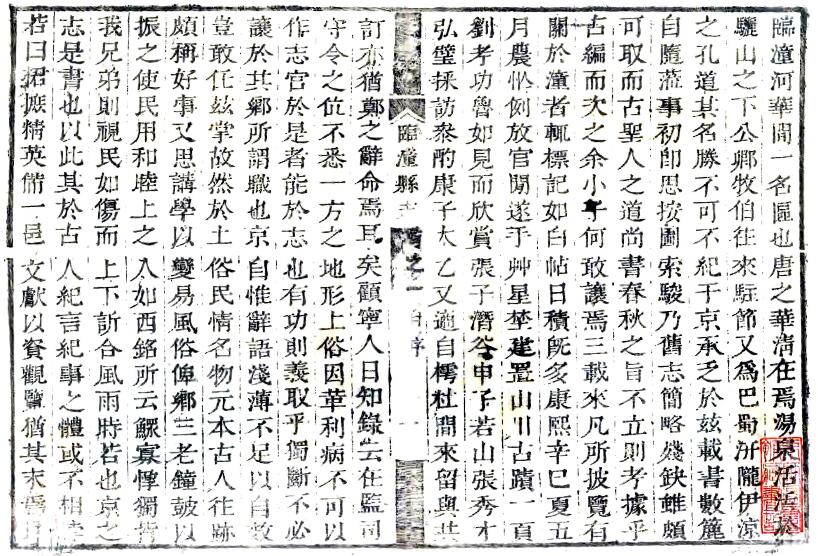 臨潼河華間一名區也唐之華清在焉湯泉活活於
驪山之下公卿牧伯往來駐節又為巴蜀汧隴伊涼
之孔道其名勝不可不紀于京承乏於兹載書數簏
自隨蒞事初卽思按圖索駿乃舊志簡略殘缺雖頗
可取而古聖人之道尚書春秋之旨不立則考據乎
古編而次之余小子何敢讓焉三載來凡所披覽有
關於潼者輒標記如白帖日積旣多康熙辛巳夏五
月農忙例放官閒遂于艸星埜建置山川古蹟一頁
劉孝功魯如見而欣賞張子潛谷申子若山張秀才
弘璧採訪叅酌康子太乙又適自樗杜間來留與共
臨潼縣志 卷之一 自序 一
訂亦猶鄭之辭命焉耳矣顧寧人日知錄云在監司
守令之位不悉一方之地形土俗因革利病不可以
作志官於是者能於志也有功則義取乎獨斷不必
讓於其鄉所謂職也京自惟辭語淺薄不足以自敘
豈敢任兹掌故然於土俗民情名物元本古人往跡
頗稱好事又思講學以變易風俗俾鄉三老鐘鼓以
振之使民用和睦上之人如西銘所云鰥寡惸獨皆
我兄弟則視民如傷而上下訢合風雨時若也京之
志是書也以此其於古人紀言紀事之體或不相
若曰捃摭精英備一邑文獻以資觀覽猶其末